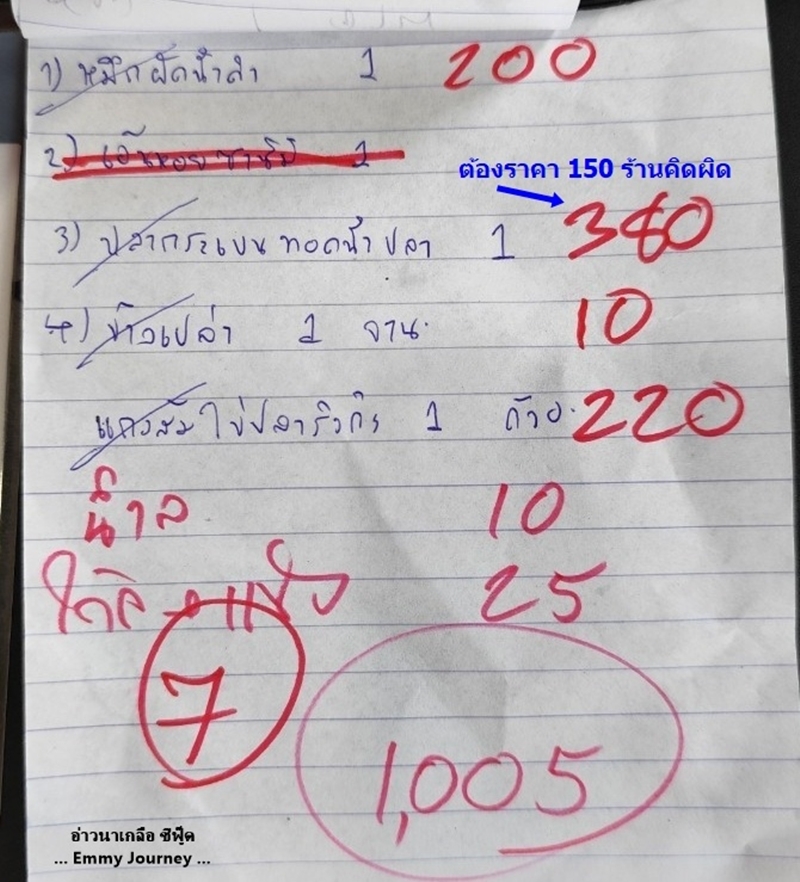 1) หมึกผัดน้ำดำ 1 200
2) เอ็นหอย ซาซิมิ 1
ต้องราคา 150 ร้านคิดผิด
3) ปลากระเบน ทอดน้ำปลา 1 380
4) ข้าวเปล่า 1 จาน 10
แกงส้ม ไข่ปลาริวกิว 1 ถ้วย 220
น้ำ 10
โค้ก + แข็ง 25
7
1,005
อ่าวนาเกลือ ซีฟู๊ด
... Emmy Journey ...